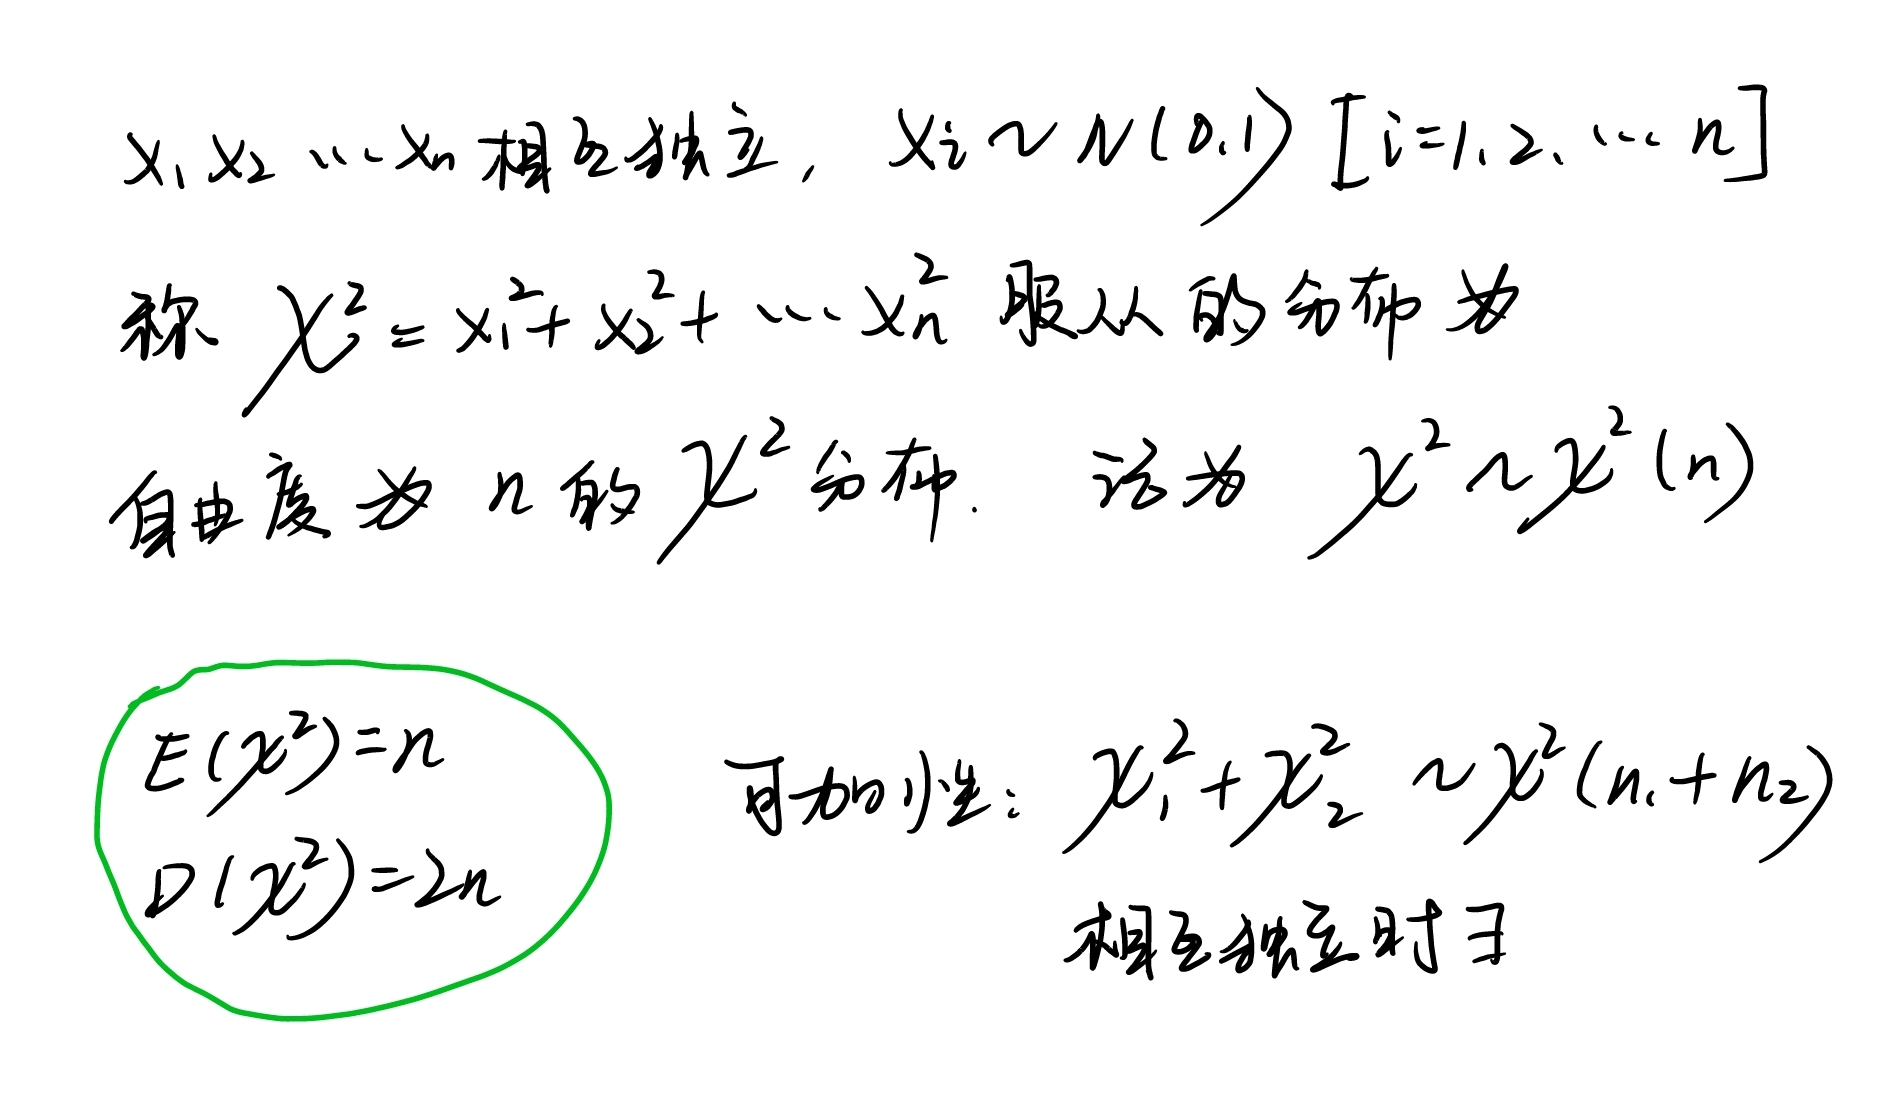 x₁ x₂ … xₙ 相互独立, xᵢ ~ N(0,1) [i=1,2,…n]
称 χ² = x₁² + x₂² + … xₙ² 服从的分布为
自由度为 n 的 χ² 分布. 记为 χ² ~ χ²(n)
E(χ²)=n
D(χ²)=2n
可加性: χ₁² + χ₂² ~ χ²(n₁+n₂)
相互独立时 ∃